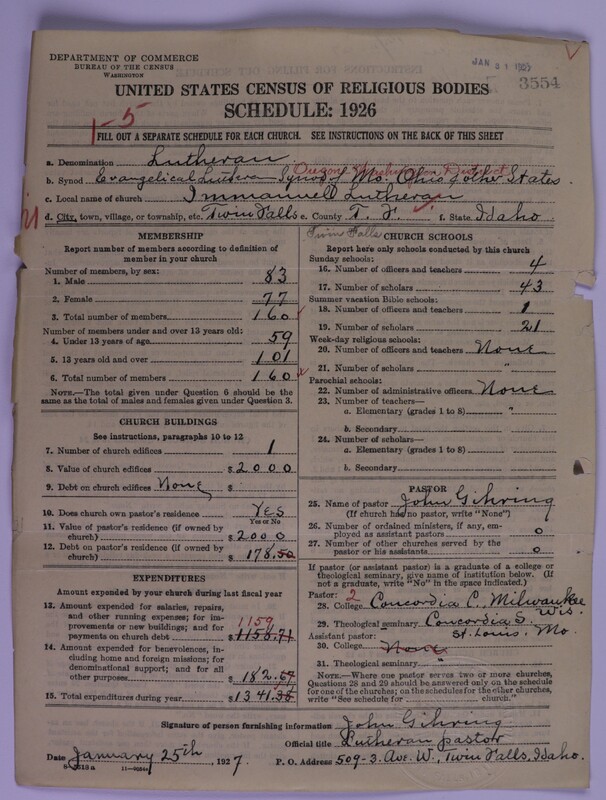 DEPARTMENT OF COMMERCE
BUREAU OF THE CENSUS
WASHINGTON
JAN 31 1927
3554
UNITED STATES CENSUS OF RELIGIOUS BODIES
SCHEDULE: 1926
1-5
FILL OUT A SEPARATE SCHEDULE FOR EACH CHURCH. SEE INSTRUCTIONS ON THE BACK OF THIS SHEET
a. Denomination Lutheran
Oregon & Washington District
b. Synod Evangelical Luthern Synod of Mo. Ohio & other States
c. Local name of church Immanuel Lutheran
d. City, town, village, or township, etc. Twin Falls e. County T. F. f. State Idaho
Twin Falls
MEMBERSHIP
Report number of members according to definition of
member in your church
Number of members, by sex:
1. Male 83
2. Female 77
3. Total number of members 160
Number of members under and over 13 years old:
4. Under 13 years of age 59
5. 13 years old and over 101
6. Total number of members 160
NOTE.—The total given under Question 6 should be the
same as the total of males and females given under Question 3.
CHURCH BUILDINGS
See instructions, paragraphs 10 to 12
7. Number of church edifices 1
8. Value of church edifices $2000
9. Debt on church edifices None $
10. Does church own pastor's residence YES
Yes or No
11. Value of pastor's residence (if owned by
church) $2000
12. Debt on pastor's residence (if owned by
church) 178.50
EXPENDITURES
Amount expended by your church during last fiscal year
13. Amount expended for salaries, repairs,
and other running expenses; for im-
provements or new buildings; and for
payments on church debt $1158.71
1159
14. Amount expended for benevolences, in-
cluding home and foreign missions; for
denominational support; and for all
other purposes $182.67
15. Total expenditures during year $1341.38
CHURCH SCHOOLS
Report here only schools conducted by this church
Sunday schools:
16. Number of officers and teachers 4
17. Number of scholars 43
Summer vacation Bible schools:
18. Number of officers and teachers 1
19. Number of scholars 21
Week-day religious schools:
20. Number of officers and teachers None
21. Number of scholars "
Parochial schools:
22. Number of administrative officers None
23. Number of teachers—
a. Elementary (grades 1 to 8) "
b. Secondary
24. Number of scholars—
a. Elementary (grades 1 to 8)
b. Secondary
PASTOR
25. Name of pastor John Gihring
(If church has no pastor, write "None")
26. Number of ordained ministers, if any, em-
ployed as assistant pastors 0
27. Number of other churches served by the
pastor or his assistants 0
If pastor (or assistant pastor) is a graduate of a college or
theological seminary, give name of institution below. (If
not a graduate, write "No" in the space indicated.)
Pastor: 2
28. College Concordia C., Milwaukee
Wis.
29. Theological seminary Concordia S.
Assistant pastor: St. Louis, Mo.
30. College None
31. Theological seminary "
NOTE.—Where one pastor serves two or more churches,
Questions 28 and 29 should be answered only on the schedule
for one of the churches; on the schedules for the other churches,
write "See schedule for church."
Signature of person furnishing information John Gihring
Official title Lutheran pastor
Date January 25th, 1927. P. O. Address 509-3. Ave. W., Twin Falls, Idaho.